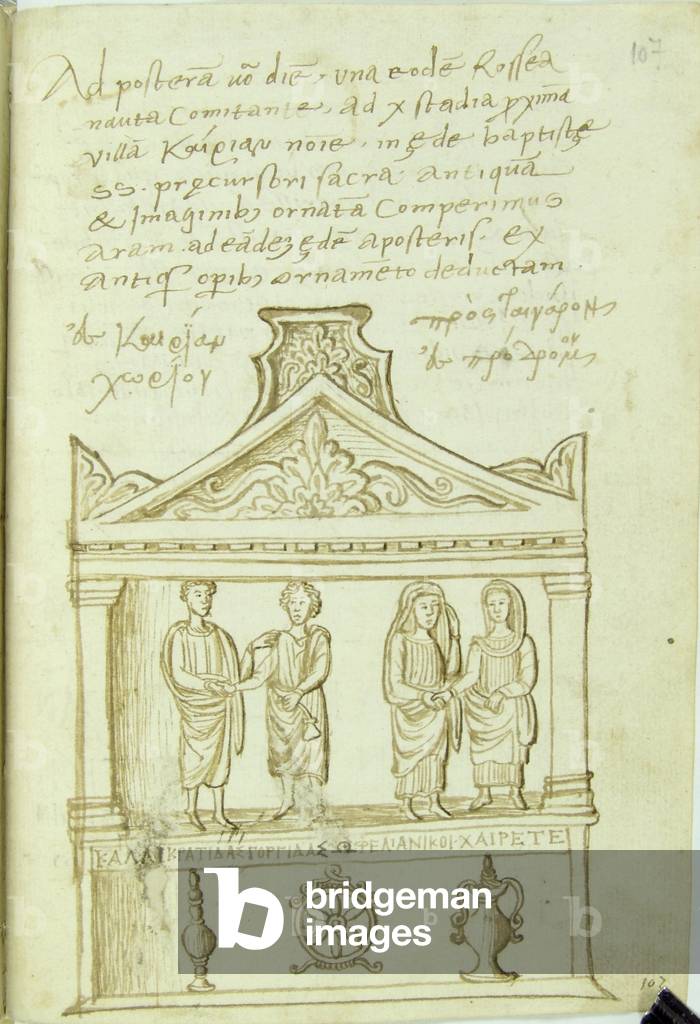 107
Ad posterā vō diē, una eodē Rossea
nauta Comitante, ad x stadia ꝓximā
villā Κυρίαν noīe, in ęde baptistę
SS. pręcursori sacra antiquā
& Imaginibꝫ ornatā Comperimus
Aram. ad eādeꝫ ędē aposteris. ex
Antiqs opibꝫ ornamēto deductam.
χωρίου
πρὸς
ΚΑΛΛΙΚΡΑΤΙΔΑΣ ΓΟΡΓΙΔΑΣ ΩΦΕΛΙΑ ΝΙΚΟΙ·ΧΑΙΡΕΤΕ
b bridgeman
images
107